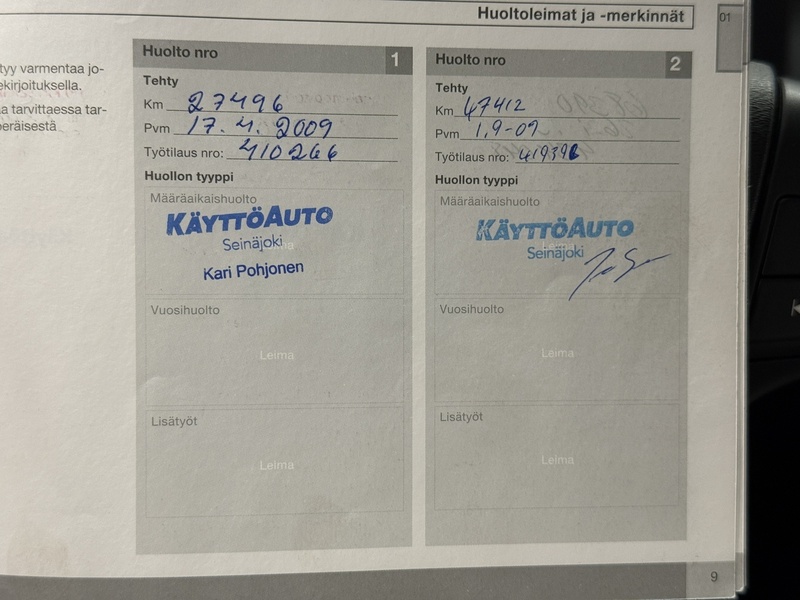 Huoltoleimat ja -merkinnät
01
tyy varmentaa jo-
ekirjoituksella.
a tarvittaessa tar-
peräisestä
Huolto nro 1
Tehty
Km 27496
Pvm 17.4.2009
Työtilaus nro: 410266
Huollon tyyppi
Määräaikaishuolto
KÄYTTÖAUTO
Seinäjoki
Kari Pohjonen
Vuosihuolto
Leima
Lisätyöt
Leima
Huolto nro 2
Tehty
Km 47412
Pvm 1.9-09
Työtilaus nro:
Huollon tyyppi
Määräaikaishuolto
KÄYTTÖAUTO
Seinäjoki
Vuosihuolto
Leima
Lisätyöt
Leima
9